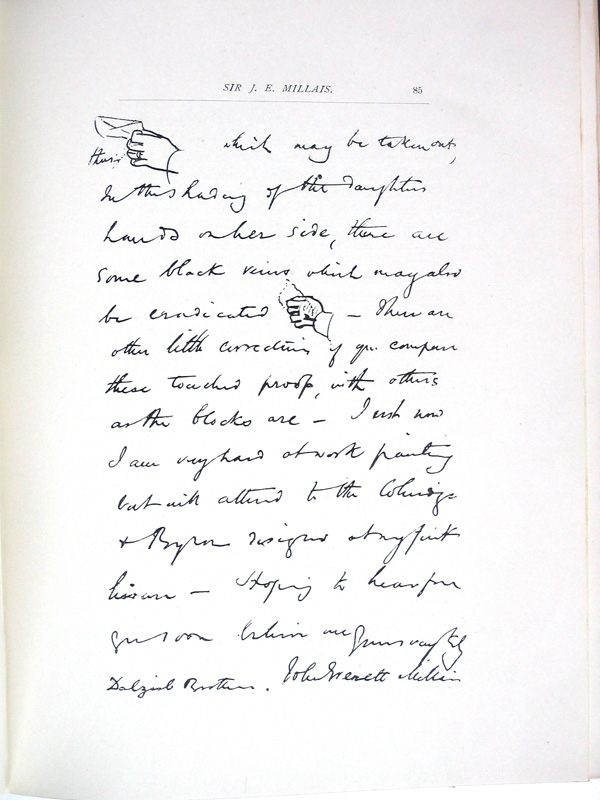 SIR J. E. MILLAIS. 85
which may be taken out,
this
In the shading of the daughters
hands on her side, there are
some black veins which may also
be eradicated — There are
other little corrections if you compare
these touched proofs, with others
as the blocks are — Just now
I am very hard at work painting
but will attend to the Coleridge
& Byron designs at my first
leisure — Hoping to hear from
you soon believe me Yours very truly
Dalziel Brothers. John Everett Millais